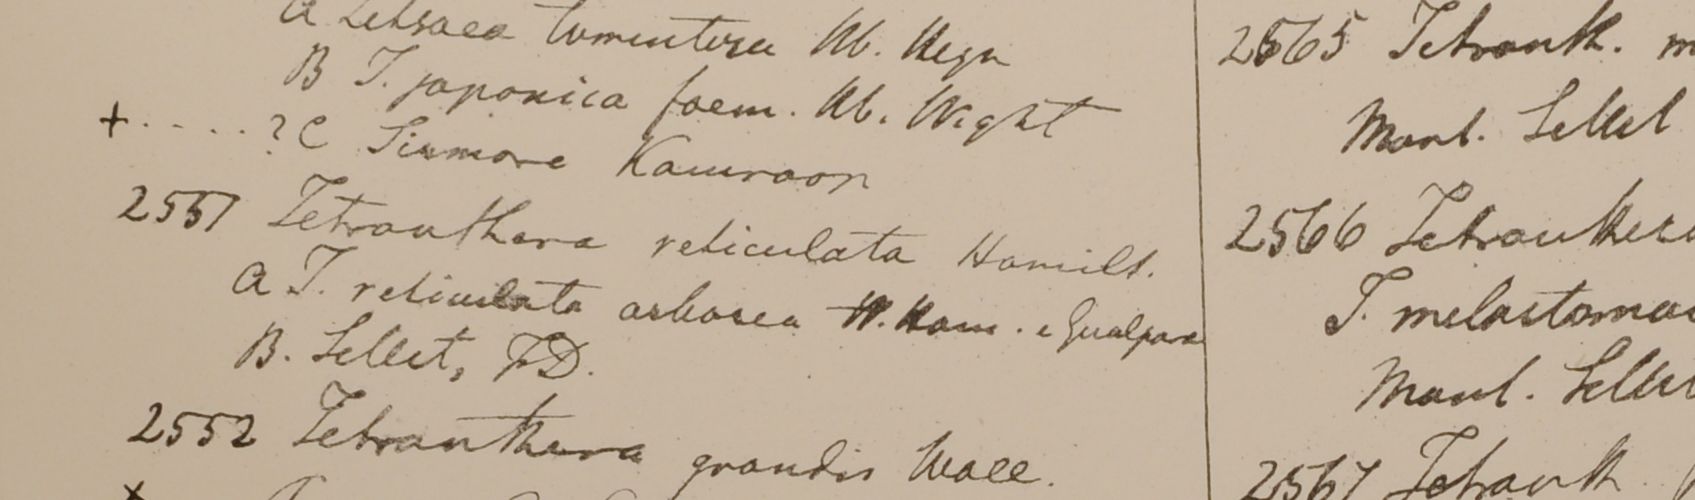 A Letsaea tomentosa Hb. Heyn
B T. japonica foem. Hb. Wight
+ . . . . . ? C Sirmore Kamroon
2551 Tetranthera reticulata Hamilt.
A T. reticulata arborea H. Ham. e Gualpara
B. Sellet, FD.
2552 Tetranthera grandis Wall.
x
2565 Tetranth. m
Mont. Sillet
2566 Tetranthera
T. melastomac
Mont. Sillet
2567 Tetranth.